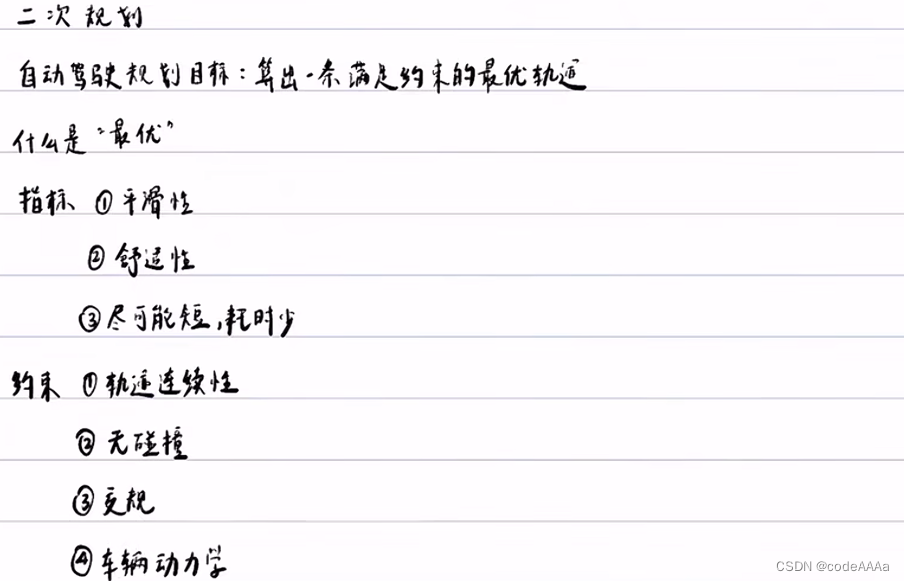 二次规划
自动驾驶规划目标:算出一条满足约束的最优轨迹
什么是“最优”
指标 ①平滑性
②舒适性
③尽可能短,耗时少
约束 ①轨迹连续性
②无碰撞
③交规
④车辆动力学
CSDN @codeAAAa